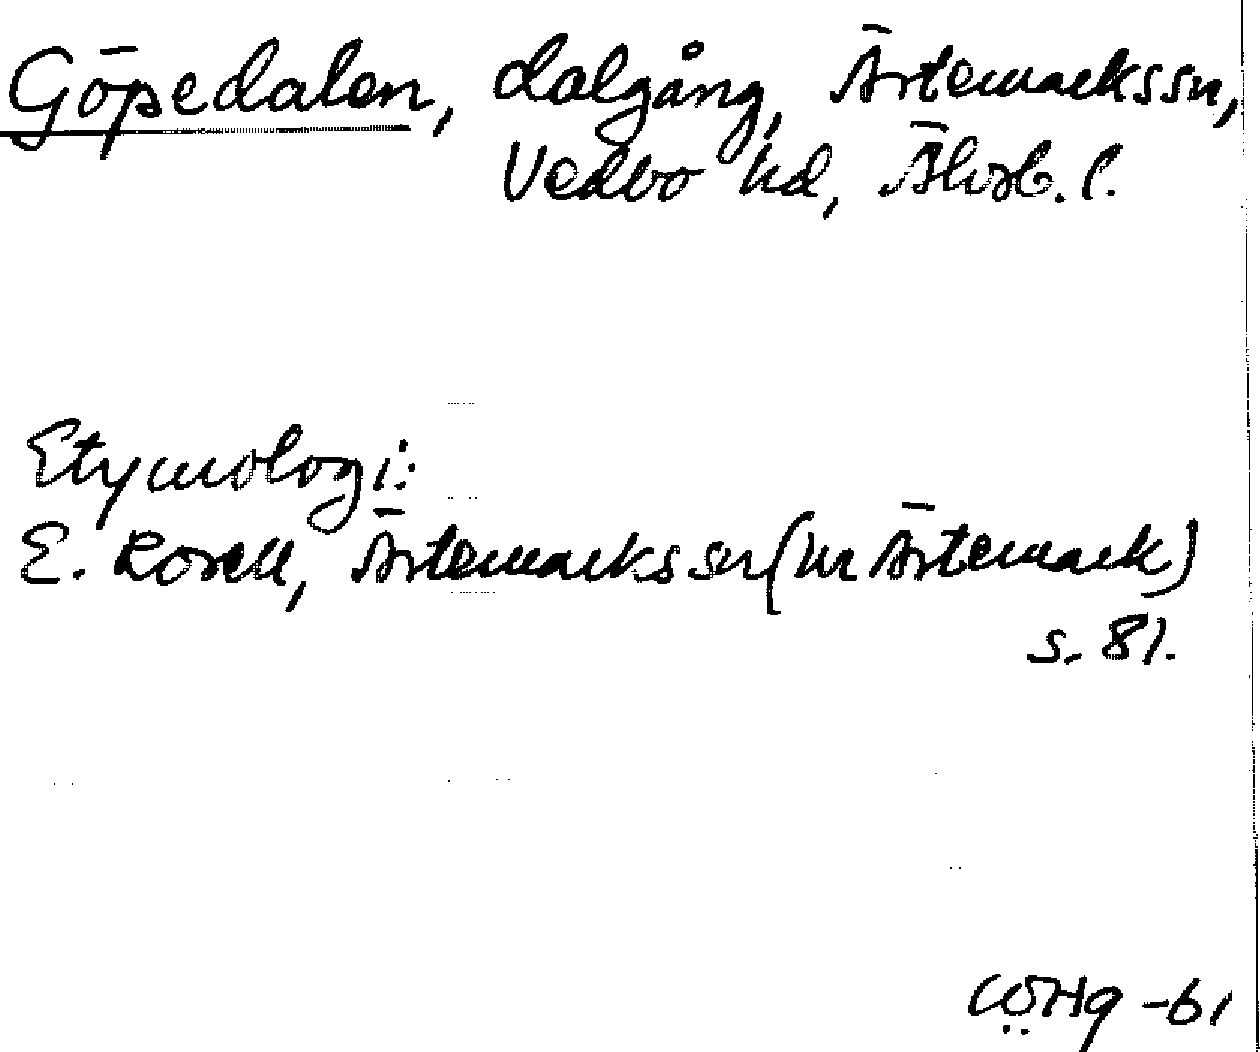 Göpedalen, dalgång, Ärtemarks sn,
Vedbo hd, Älvsb. l.
Etymologi:
E. Rosell, Ärtemarks sn (ur Ärtemark)
s. 81.
CÖHg -61